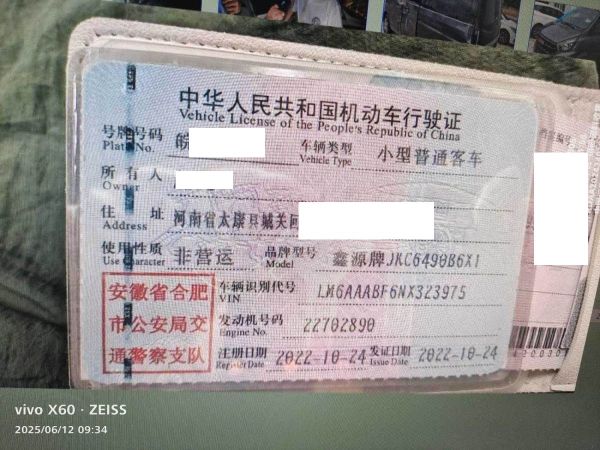 中华人民共和国机动车行驶证
Vehicle License of the People's Republic of China
号牌号码 皖
Plate No.
车辆类型 小型普通客车
Vehicle Type
所有人
Owner
住址 河南省太康县城关回
Address
使用性质 非营运
Use Character
品牌型号 鑫源牌JKC6490B6X1
Model
安徽省合肥
市公安局交
通警察支队
车辆识别代号 LM6AAABF6NX323975
VIN
发动机号码 22702890
Engine No.
注册日期 2022-10-24
Register Date
发证日期 2022-10-24
Issue Date
vivo X60 · ZEISS
2025/06/12 09:34